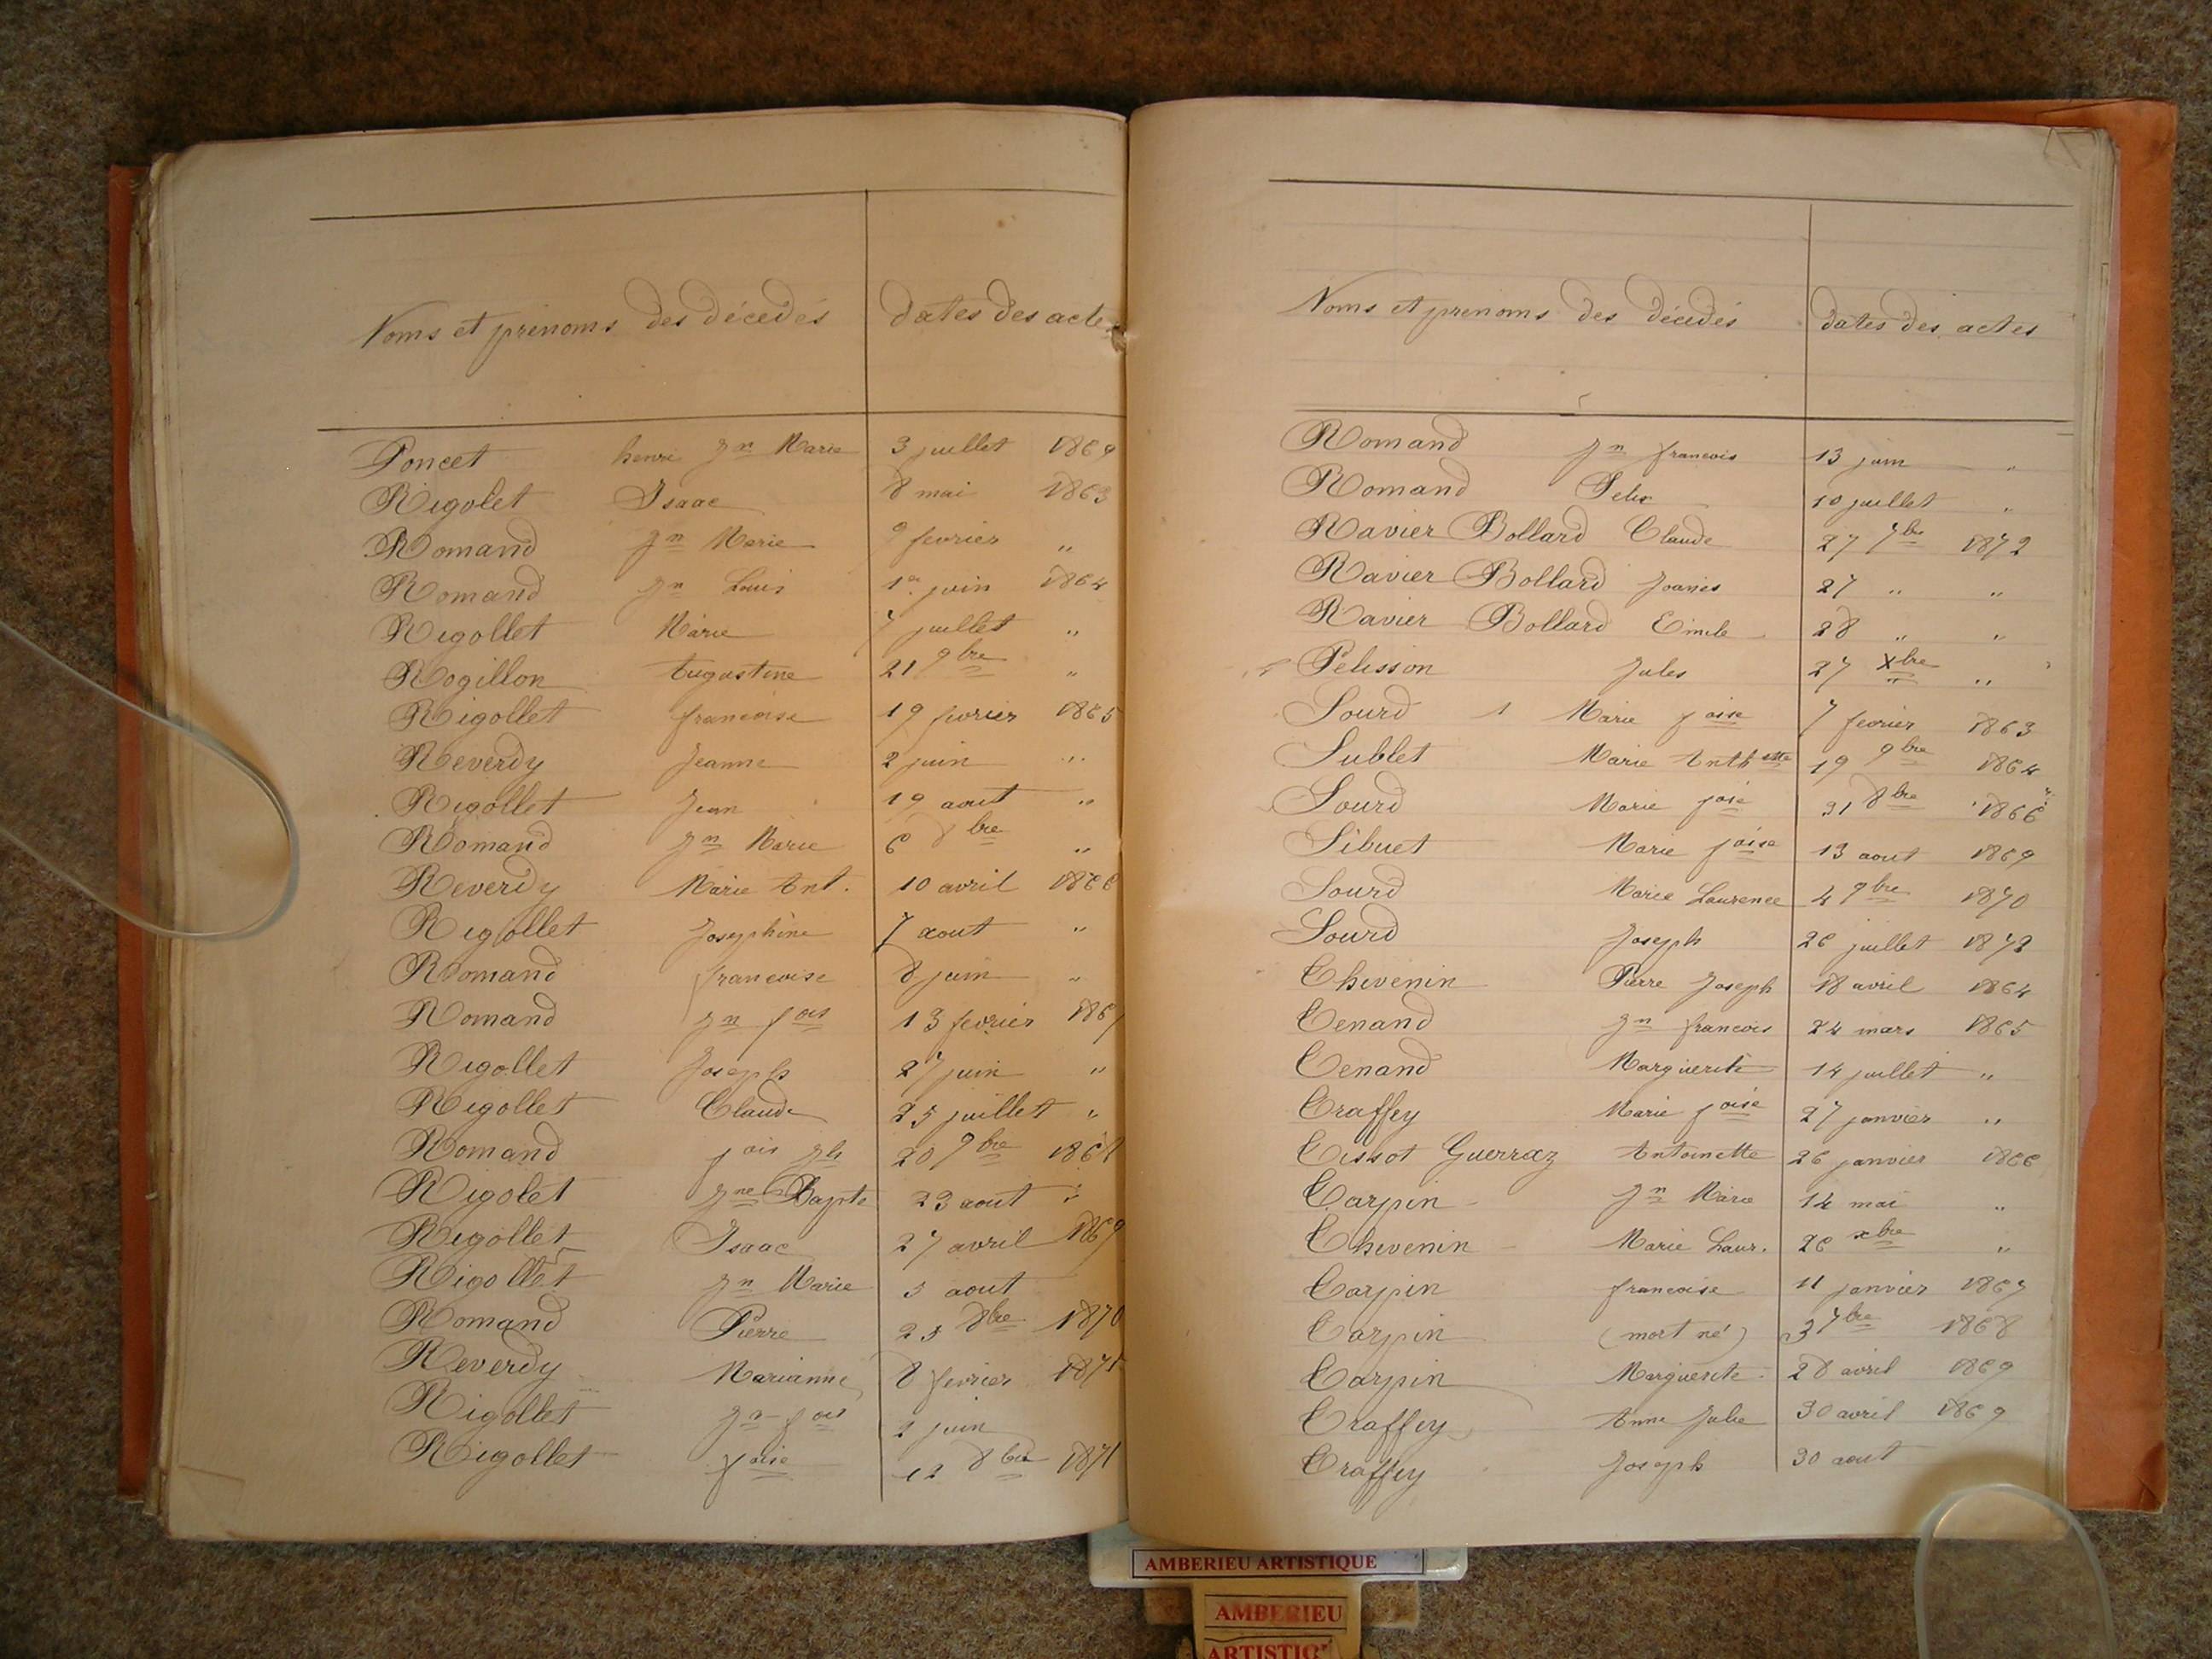 Noms et prenoms des décedés dates des acte
Poncet henri Jn Marie 3 juillet 1869
Rigolet Isaac 8 mai 1863
Romand Jn Marie 9 fevrier "
Romand Jn Louis 1er juin 1864
Rigollet Marie 7 juillet "
Rogillon Augustine 21 9bre "
Rigollet francoise 19 fevrier 1865
Reverdy Jeanne 2 juin "
Rigollet Jean 19 aout "
Romand Jn Marie 6 8bre "
Reverdy Marie Ant. 10 avril 1866
Rigollet Josephine 7 aout "
Romand francoise 8 juin "
Romand Jn fois 13 fevrier 1867
Rigollet Joseph 27 juin "
Rigollet Claude 25 juillet "
Romand fois Jh 20 9bre 1868
Rigolet Jne Bapte 23 aout "
Rigollet Isaac 27 avril 1869
Rigollet Jn Marie 5 aout
Romand Pierre 25 8bre 1870
Reverdy Marianne 8 fevrier 1871
Rigollet Jn fois 2 juin
Rigollet foise 12 8bre 1871
Noms et prenoms des décédés dates des actes
Romand Jn francois 13 juin "
Romand Felix 10 juillet "
Ravier Bollard Claude 27 7bre 1872
Ravier Bollard Joanes 27 " "
Ravier Bollard Emile 28 " "
Pelisson Jules 27 Xbre "
Sourd Marie foise 7 fevrier 1863
Sublet Marie Anthette 19 9bre 1864
Sourd Marie foise 31 8bre 1866
Sibuet Marie foise 13 aout 1869
Sourd Marie Laurence 4 9bre 1870
Sourd Joseph 26 juillet 1872
Thevenin Pierre Joseph 18 avril 1864
Tenand Jn francois 24 mars 1865
Tenand Marguerite 14 juillet "
Traffey Marie foise 27 janvier "
Tissot Guerraz Antoinette 26 janvier 1866
Tarpin Jn Marie 14 mai "
Thevenin Marie Laur. 26 xbre "
Tarpin francoise 11 janvier 1867
Tarpin (mort né) 3 7bre 1868
Tarpin Marguerite 28 avril 1869
Traffey Anne Julie 30 avril 1869
Traffey Joseph 30 aout
AMBERIEU ARTISTIQUE
AMBERIEU